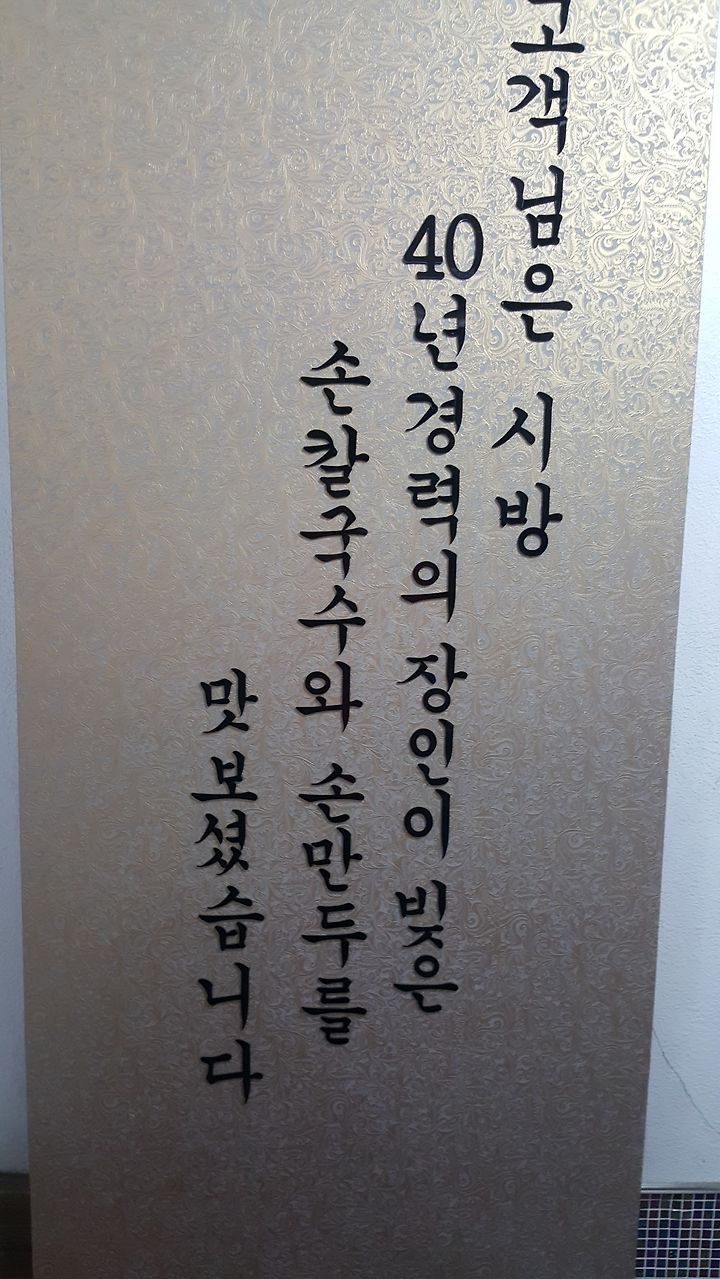 고객님은 시방
40년경력의 장인이 빚은
손칼국수와 손만두를
맛보셨습니다